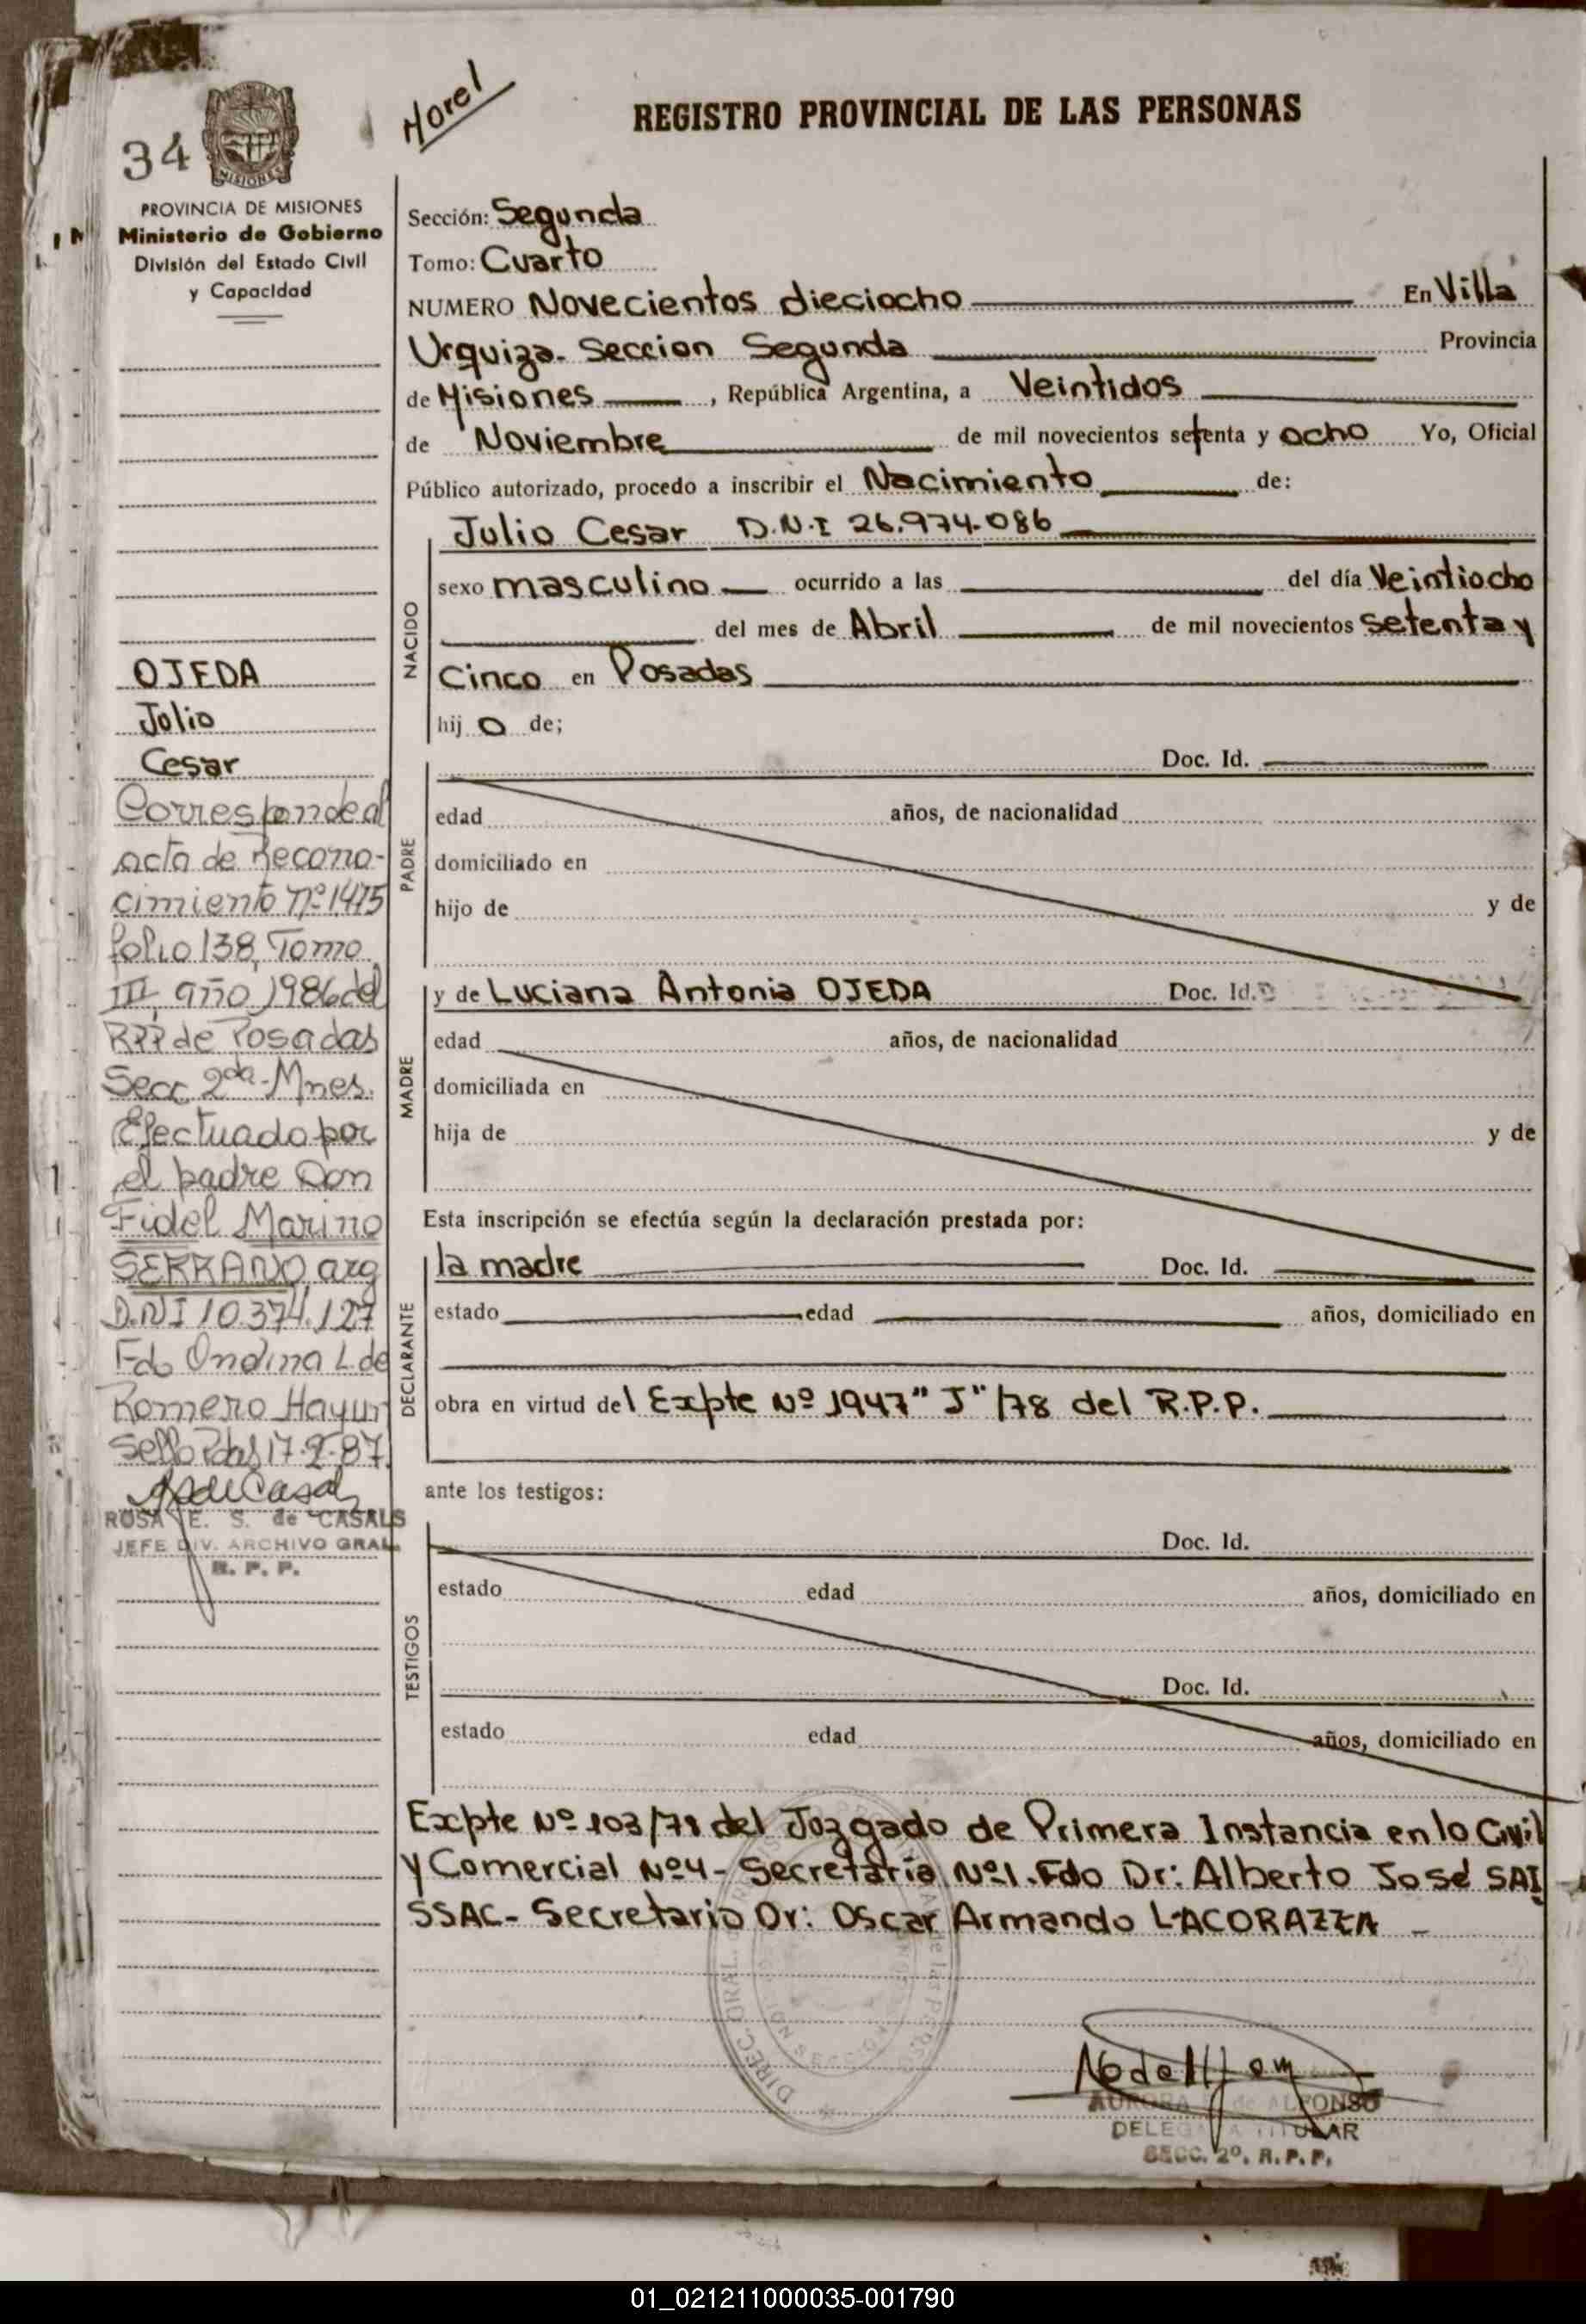 Horel
REGISTRO PROVINCIAL DE LAS PERSONAS
34
MISIONES
PROVINCIA DE MISIONES
Ministerio de Gobierno
División del Estado Civil
y Capacidad
OJEDA
Julio
Cesar
Corresponde al
acta de Recono-
cimiento Nº 1475
folio 138, Tomo
III, año 1986 del
RPP de Posadas
Secc 2da - Mnes.
Efectuado por
el padre Don
Fidel Marino
SERRANO arg
D.N.I 10.374.127
Fdo Ondina L. de
Romero Hayur
Sello Pdas 17-2-87.
ROSA E. S. de CASALS
JEFE DIV. ARCHIVO GRAL.
R. P. P.
Sección: Segunda
Tomo: Cuarto
NUMERO Novecientos dieciocho En Villa
Urquiza - Seccion Segunda Provincia
de Misiones, República Argentina, a Veintidos
de Noviembre de mil novecientos setenta y ocho Yo, Oficial
Público autorizado, procedo a inscribir el Nacimiento de:
NACIDO
Julio Cesar D.N.I 26.974.086
sexo masculino ocurrido a las del día Veintiocho
del mes de Abril de mil novecientos setenta y
Cinco en Posadas
hij o de;
PADRE
Doc. Id.
edad años, de nacionalidad
domiciliado en
hijo de y de
MADRE
y de Luciana Antonia OJEDA Doc. Id.
edad años, de nacionalidad
domiciliada en
hija de y de
Esta inscripción se efectúa según la declaración prestada por:
DECLARANTE
la madre Doc. Id.
estado edad años, domiciliado en
obra en virtud del Expte Nº 1947 "J" /78 del R.P.P.
ante los testigos:
TESTIGOS
Doc. Id.
estado edad años, domiciliado en
Doc. Id.
estado edad años, domiciliado en
Expte Nº 103/78 del Juzgado de Primera Instancia en lo Civil
y Comercial Nº 4 - Secretaría Nº 1. Fdo Dr: Alberto José SAI
SSAC - Secretario Dr: Oscar Armando LACORAZZA -
DIREC. GRAL.
AURORA de ALFONSO
DELEGADA TITULAR
SECC. 2º. R. P. P.
01_021211000035-001790